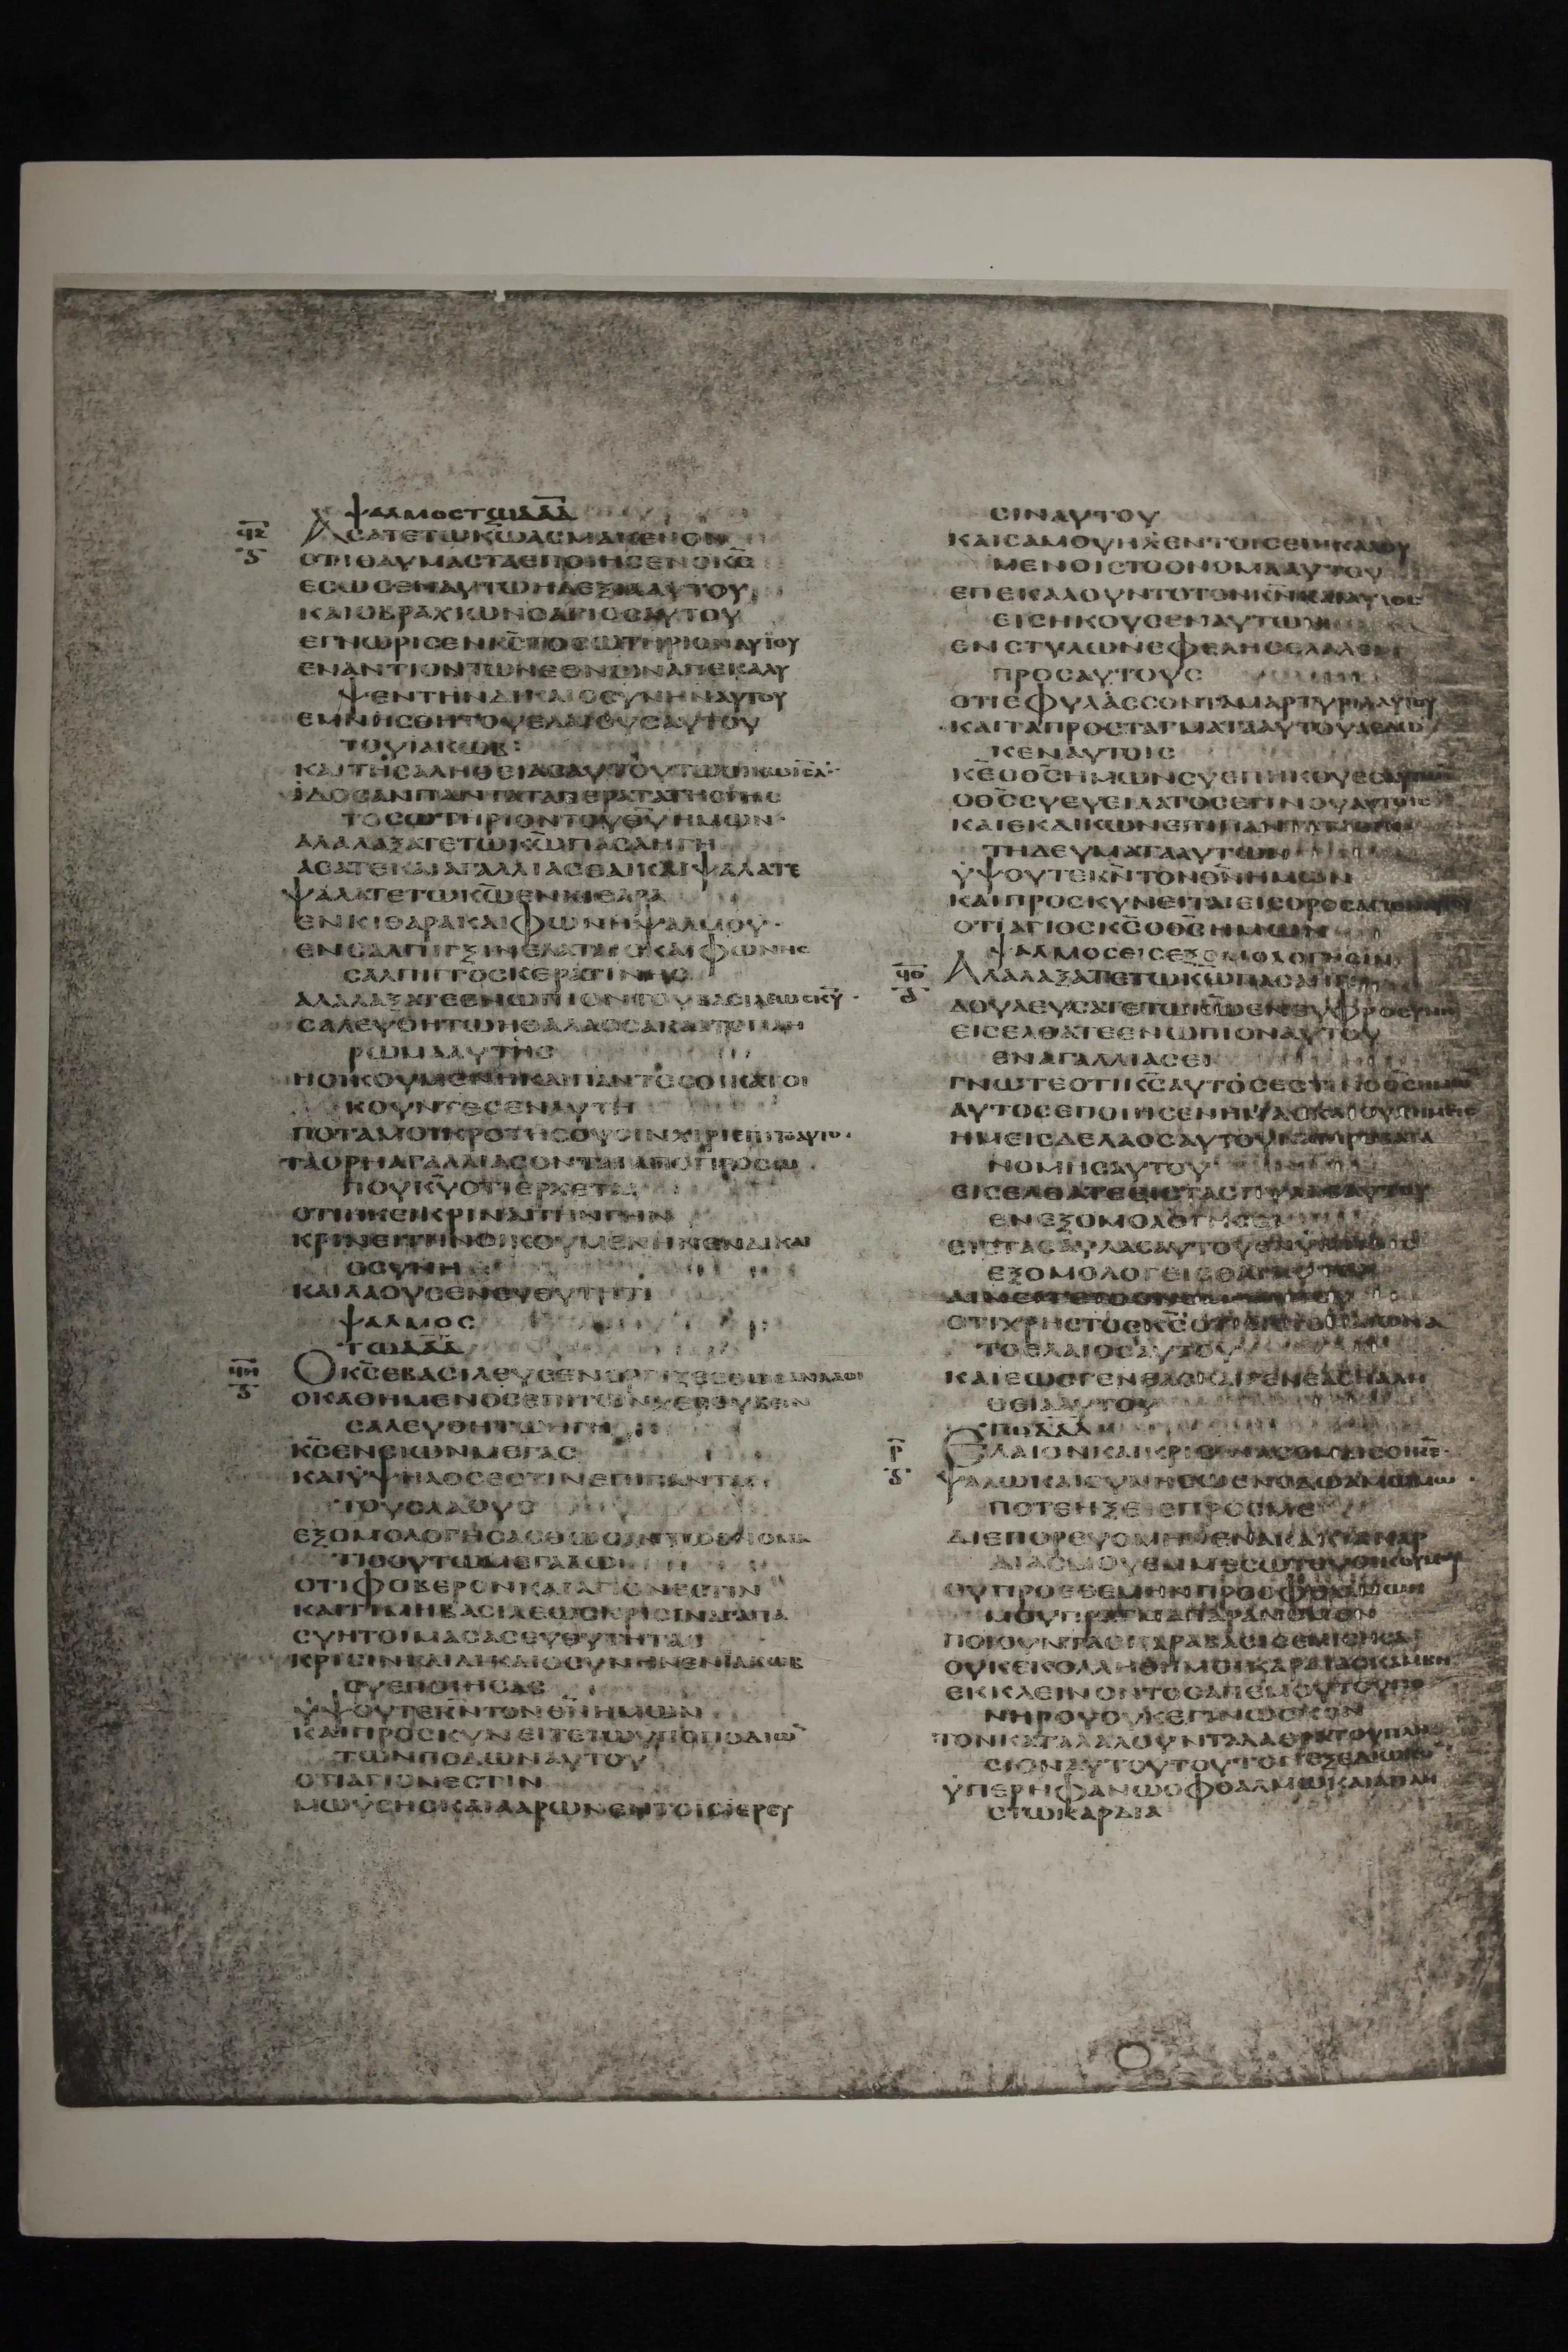 ψαλμοστωδαδ
ϥζ
ΑσατετωκωασμακεΝον
οτιθαυμασταεποιησενοκσ
εσωσεναυτωηδεξιααυτου
καιοβραχιωνοαγιοσαυτου
εγνωρισενκσ̅τοσωτηριοναυτου
εναντιοντωνεθνωναπεκαλυ
ψεντηνδικαιοσυνηναυτου
εμνησθητουελαιουσαυτου
τουιακωβ
καιτησαληθειασαυτουτω
ιδοσανπανταταπερατατησγησ
τοσωτηριοντουθυημων
αλαλαξατετωκωπασαηγη
ασατεκαιαγαλλιασθαικαιψαλατε
ψαλατετωκωενκιθαρα
ενκιθαρακαιφωνηψαλμου
ενσαλπιγξινελαταισκαιφωνησ
σαλπιγγοσκερατινησ
αλαλαξατεενωπιοντουβασιλεωσκυ
σαλευθητωηθαλασσακαιτοπλη
ρωμααυτησ
ηοικουμενηκαιπαντεσοικατοι
κουντεσεναυτη
ποταμοικροτησουσινχιρι
ταορηαγαλλιασονταιαποπροσω
πουκυοτιερχεται
οτιηκεικριναιτηνγην
κρινειτηνοικουμενηνενδικαι
οσυνη
καιλαουσενευθυτητι
ψαλμοσ
τωδαδ
ϥη
Οκσεβασιλευσενοργιζεσθωσανλαοι
οκαθημενοσεπιτωνχερουβειν
σαλευθητωηγη
κσενσιωνμεγασ
καιυψηλοσεστινεπιπαντασ
τουσλαουσ
εξομολογησασθωσαντωονομα
τισουτωμεγαλω
οτιφοβερονκαιαγιονεστιν
καιτιμηβασιλεωσκρισιναγαπα
συητοιμασασευθυτητασ
κρισινκαιδικαιοσυνηνενιακωβ
συεποιησασ
υψουτεκντονθνημων
καιπροσκυνειτετωυποποδιω
τωνποδωναυτου
οτιαγιονεστιν
μωυσησκαιααρωνεντοισιερευ
σιναυτου
καισαμουηλεντοισεπικαλου
μενοιστοονομααυτου
επεκαλουντοτονκνκαιαυτοσ
εισηκουσεναυτων
ενστυλωνεφεληςελαλει
προσαυτουσ
οτιεφυλασσονταμαρτυριααυτου
καιταπροσταγματααυτουαεδω
κεναυτοισ
κεοθσημωνσυεπηκουεσαυτων
οθσσυευειλατοσεγινουαυτοισ
καιεκδικωνεπιπαντατα
τηδευματααυτων
υψουτεκντονθνημων
καιπροσκυνειταιεισοροσαγιοναυτου
οτιαγιοσκσοθσημων
ψαλμοσεισεξομολογησιν
ϥθ
Αλαλαξατετωκωπασαηγη
δουλευσατετωκωενευφροσυνη
εισελθατεενωπιοναυτου
εναγαλλιασει
γνωτεοτικσαυτοσεστινοθσημων
αυτοσεποιησενημασκαιουχημεισ
ημεισδελαοσαυτουκαιπροβατα
νομησαυτου
εισελθατεειστασπυλασαυτου
ενεξομολογησει
ειστασαυλασαυτουενυμνοισ
εξομολογεισθαιαυτω
οτιχρηστοσκσεισ
τοελαιοσαυτου
καιεωσγενεασκαιγενεασηαλη
θιααυτου
τωδαδ
ρ
Ελαιονκαικρισινασομαισοικε
ψαλωκαισυνησωενοδωαμωμω
ποτεηξειεπροσμε
διεπορευομηνενακακιακαρ
διασμουενμεσωτουοικουμου
ουπροεθεμηνπροοφθαλμων
μουπραγμαπαρανομον
ποιουντασπαραβασισεμισησα
ουκεκολληθημοικαρδιασκαμβη
εκκλεινοντοσαπεμουτουπο
νηρουουκεγινωσκον
τονκαταλαλουνταλαθρατουπλη
σιοναυτουτουτονεξεδιωκον
υπερηφανωοφθαλμωκαιαπλη
στωκαρδια